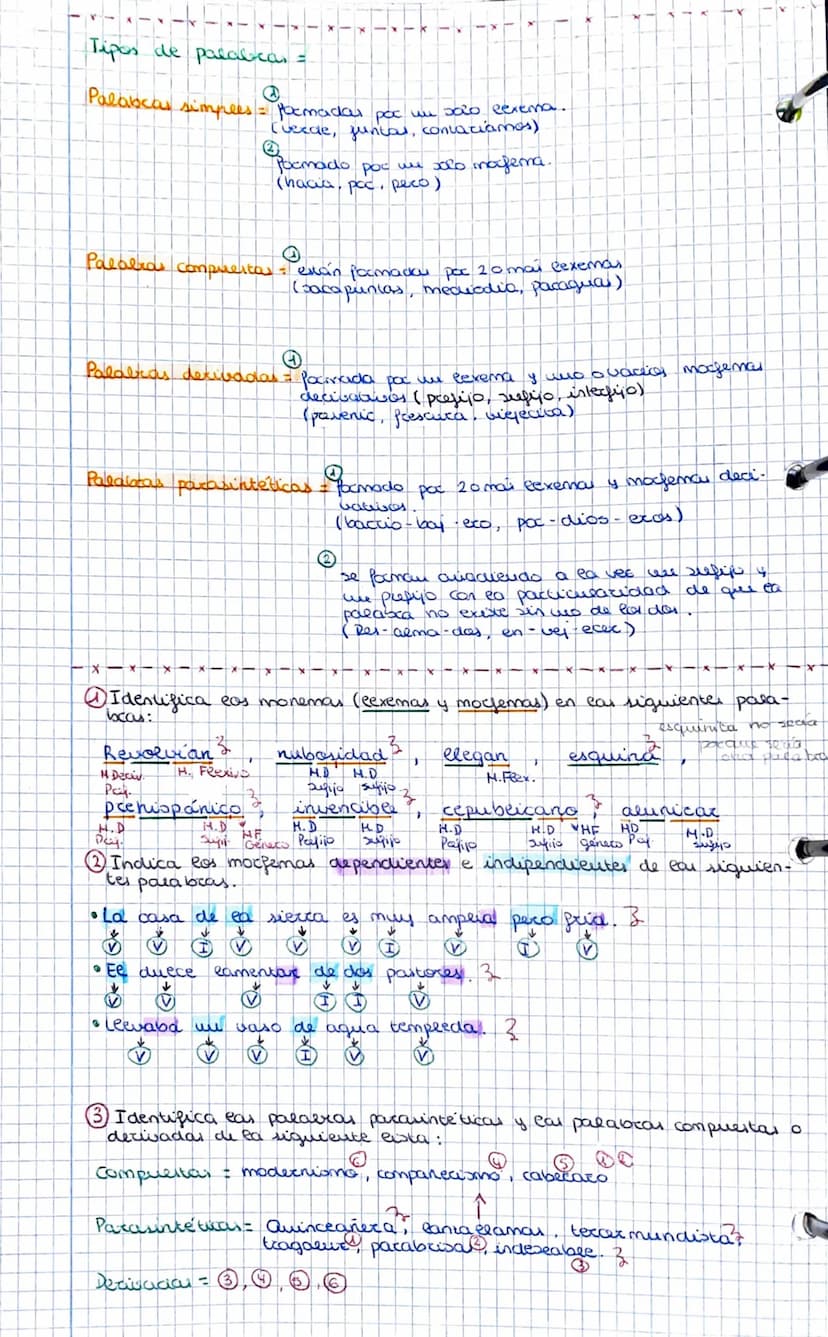 Tipos de palabras =
Palabras simples = ① formadas por un solo lexema.
(verde, juntas, contaríamos)
② formado por un solo morfema.
(hacia, por, pero)
Palabras compuestas = ① están formadas por 2 o más lexemas
(sacapuntas, mediodía, paraguas)
Palabras derivadas = ① formada por un lexema y uno o varios morfemas
derivativos (prefijo, sufijo, interfijo)
(porvenir, frescura, viejecita)
Palabras parasintéticas = ① formado por 2 o más lexemas y morfemas deri-
vativos.
(barrio-baj-ero, por-dios-eros)
② se forman añadiendo a la vez un sufijo y
un prefijo con la particularidad de que la
palabra no existe sin uno de los dos.
(Des-alma-dos, en-vej-ecer)
① Identifica los monemas (lexemas y morfemas) en las siguientes pala-
bras:
esquinita no sería
porque sería
otra palabra
Revolvían, nubosidad, llegan, esquina,
M Deriv. M. Flexivo M.D M.D M.Flex.
Pref. sufijo sufijo
prehispánico, invencible, republicano, alunizar
M.D M.D MF M.D M.D M.D M.D MF MD M.D
Pref. Sufij Género Prefijo sufijo Prefijo sufijo género Pref sufijo
② Indica los morfemas dependientes e indipendientes de las siguien-
tes palabras.
• La casa de la sierra es muy amplia pero fría.
V V I V V V I V I V
• El dulce lamentar de dos pastores.
V V V I I V
• Llevaba un vaso de agua templada.
V V V I V V
③ Identifica las palabras parasintéticas y las palabras compuestas o
derivadas de la siguiente lista:
Compuestas = modernismo ⑥, compañerismo ④, cabezazo ⑤ ① ②
Parasintéticas = Quinceañera, cantallamas, tercermundista,
tragaluz ①, parabrisas ②, indeseable. ③
Derivadas = ③, ④, ⑤, ⑥